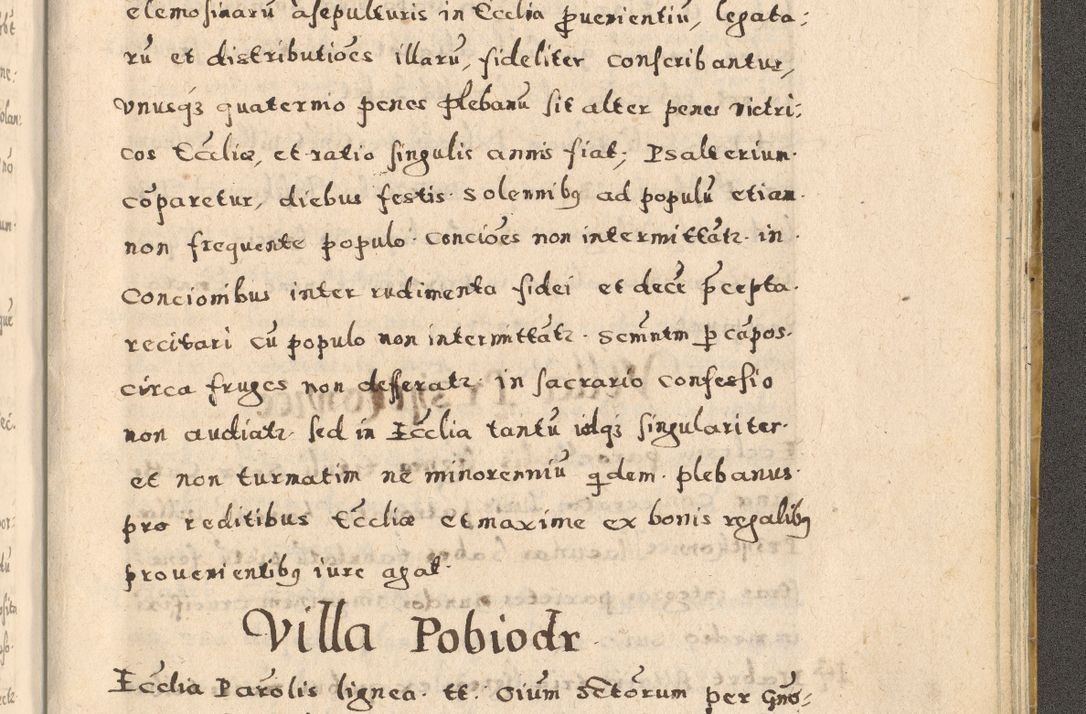 elemosinarū àsepulturis in Ecclia ꝓuenientiū, legata:
rū et distributiões illarū, fideliter conscribantur,
vnusq3 quaternio penes plebanū sit alter penes victri:
cos Eccliæ, et ratio singulis annis fiat, Psalterium
cōparetur, diebus festis solennib9 ad populū etiam
non frequente populo concioēs non intermittātr. in
concionibus inter rudimenta fidei et decē p̄cepta
recitari cū populo non intermittātr. scmntm ꝑ cāpos
circa fruges non deferatr. in sacrario confessio
non audiatr. sed in Ecclia tantū idq3 singulariter
et non turmatim ne minorenniū qdem. plebanus
pro reditibus Eccliæ et maxime ex bonis regalib9
prouenientib9 iure agat.
Villa Pobiodr
Ecclia Parōlis lignea tt. Oium Sctorum per Gnō: